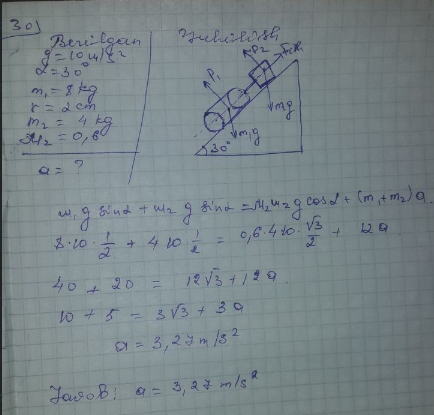 30)
Berilgan
g=10m/s²
α=30°
m₁=8kg
r=2cm
m₂=4kg
μ₂=0,6
a=?
P₁
P₂
m₁g
m₂g
30°
m₁g sinα + m₂g sinα = μ₂m₂g cosα + (m₁+m₂)a.
8·10·1/2 + 4·10·1/2 = 0,6·4·10·√3/2 + 12a
40 + 20 = 12√3 + 12a.
10 + 5 = 3√3 + 3a
a = 3,27 m/s²
Javob: a = 3,27 m/s²